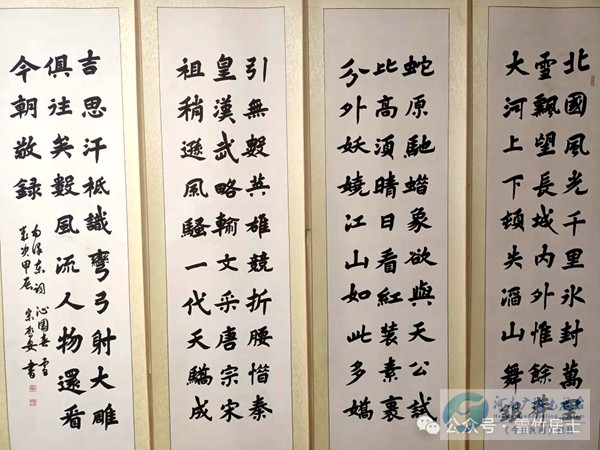 北國風光千里冰封萬里
雪飄望長城内外惟餘莽
大河上下頓失滔山舞銀
蛇原馳蜡象欲與天公試
比高須晴日看紅裝素裹
分外妖嬈江山如此多嬌
引無數英雄競折腰惜秦
皇漢武略輸文采唐宗宋
祖稍遜風騷一代天驕成
吉思汗祗識彎弓射大雕
俱往矣數風流人物還看
今朝敬録
毛澤東詞 沁園春 雪
歲次甲辰 宋 書
河南广播电视台
公众号·雲竹居士